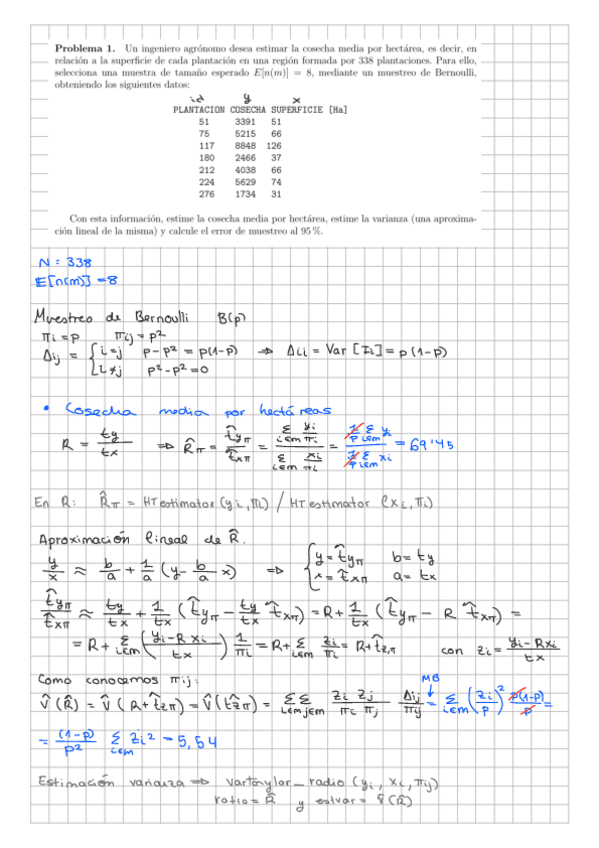 Problema 1. Un ingeniero agrónomo desea estimar la cosecha media por hectárea, es decir, en
relación a la superficie de cada plantación en una región formada por 338 plantaciones. Para ello,
selecciona una muestra de tamaño esperado E[n(m)] = 8, mediante un muestreo de Bernoulli,
obteniendo los siguientes datos:
id y x
PLANTACION COSECHA SUPERFICIE [Ha]
51 3391 51
75 5215 66
117 8848 126
180 2466 37
212 4038 66
224 5629 74
276 1734 31
Con esta información, estime la cosecha media por hectárea, estime la varianza (una aproxima-
ción lineal de la misma) y calcule el error de muestreo al 95 %.
N = 338
E[n(m)] = 8
Muestreo de Bernoulli B(p)
πi = p πij = p²
Δij = { i=j p-p² = p(1-p) ⇒ Δii = Var [Ii] = p(1-p)
i≠j p²-p² = 0
• Cosecha media por hectáreas
R = ty/tx ⇒ R̂π = t̂yπ/t̂xπ = (Σ i∈m yi/πi)/(Σ i∈m xi/πi) = (1/p Σ i∈m yi)/(1/p Σ i∈m xi) = 69'45
En R: R̂π = HTestimator(yi, πi) / HTestimator(xi, πi)
Aproximación lineal de R̂.
y/x ≈ b/a + 1/a (y - b/a x) ⇒ { y = t̂yπ b = ty
x = t̂xπ a = tx
t̂yπ/t̂xπ ≈ ty/tx + 1/tx (t̂yπ - ty/tx t̂xπ) = R + 1/tx (t̂yπ - R t̂xπ) =
= R + Σ i∈m ((yi - R xi)/tx) 1/πi = R + Σ i∈m zi/πi = R + t̂z,π con zi = (yi - Rxi)/tx
Como conocemos πij:
MB
V̂(R̂) = V̂(R + t̂zπ) = V̂(t̂zπ) = Σ i∈m Σ j∈m zi/πi zj/πj Δij/πij = Σ i∈m (zi/p)² p(1-p)/p =
= (1-p)/p² Σ i∈m zi² = 5,54
Estimación varianza ⇒ vartaylor_radio (yi, xi, πij)
ratio = R̂ y estvar = V̂(R̂)